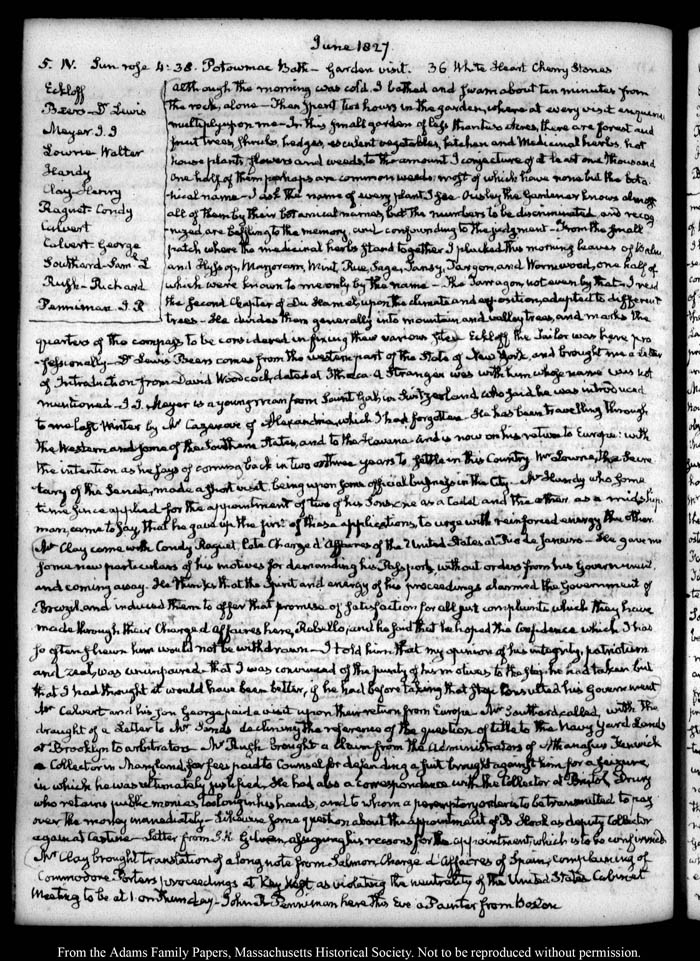 June 1827
5. IV. Sun rose 4:38. Potowmac Bath – Garden visit. 36 White Heart Cherry Stones
Eckloff
Beers – Dr Lewis
Meyer I. I
Lowrie Walter
Hardy
Clay – Henry
Raguet – Condy
Calvert
Calvert – George
Southard – Sam. L
Rush – Richard
Penniman I. R
Although the morning was cold. I bathed and swam about ten minutes from
the rock, alone – Then spent two hours in the garden, where at every visit
multiply upon me – In this small garden of less than two acres, there are forest and
fruit trees, shrubs, hedges, esculent vegetables, kitchen and Medicinal herbs, hot
house plants, flowers and weeds, to the amount I conjecture of at least one thousand
one half of them perhaps are common weeds, most of which have none but the bota-
nical name – I ask the name of every plant I see. Ousley the Gardener knows almost
all of them by their botanical names, but the numbers to be discriminated and recog-
nized, are baffling to the memory, and confounding to the judgment – From the small
patch where the medicinal herbs stand together I plucked this morning leaves of Balm
and Hyssop, Marjoram, Mint, Rue, Sage, Tansy, Tarragon, and Wormwood, one half of
which were known to me only by the name – The Tarragon, not even by that – I read
the second Chapter of Du Hamel, upon the climate and exposition, adapted to different
trees – He divides them generally into mountain and valley trees, and marks the
quarters of the compass to be considered in fixing their various sites. Eckloff, the Tailor was here pro
-fessionally – Dr Lewis Beers comes from the western part of the State of New York, and brought me a Letter
of Introduction from David Woodcock, dated at Ithaca. A Stranger was with him whose name was not
mentioned – I. I. Meyer is a young man from Saint Gall, in Switzerland who said he was introduced
to me last Winter by Mr Cazenove of Alexandria, which I had forgotten – He has been travelling through
the Western and some of the Southern States, and to the Havana and is now on his return to Europe: with
the intention as he says of coming back in two or three years to settle in this Country. Mr Lowrie, the Secre-
tary of the Senate, made a short visit, being upon some official business in the City – Mr Hardy who some
time since applied for the appointment of two of his Sons, one as a Cadet and the other as a midship-
man, came to say that he gave up the first of these applications, to urge with reinforced energy the other
Mr Clay came with Condy Raguet, late Chargé d'Affaires of the United States at Rio de Janeiro – He gave me
some new particulars of his motives for demanding his Passports, without orders from his Government,
and coming away. He thinks that the spirit and energy of his proceedings alarmed the Government of
Brazil, and induced them to offer that promise of satisfaction for all just complaints which they have
made through their Chargé d'affaires here, Rebello, and he said that he hoped the Confidence which I had
so often shewn him would not be withdrawn – I told him that my opinion of his integrity, patriotism
and zeal, was unimpaired – that I was convinced of the purity of his motives to the step he had taken but
that I had thought it would have been better, if he had before taking that step consulted his Government
Mr Calvert and his Son George paid a visit upon their return from Europe. Mr Southard called, with the
draught of a Letter to Mr Sands declining the reference of the question of title to the Navy yard Lands
at Brooklyn to arbitrators – Mr Rush brought a claim from the Administrators of Athanasius Fenwick
a Collector in Maryland for fees paid to Counsel for defending a suit brought against him for a seizure,
in which he was ultimately justified. He had also a correspondence with the Collector at Bristol, Drury
who retains public monies too long in his hands, and to whom a peremptory order is to be transmitted to pay
over the money immediately – Likewise some question about the appointment of B Hook as deputy Collector
again at Castine – Letter from assigning his reasons for the appointment, which is to be confirmed.
Mr Clay brought translation of a long note from Salmon, Chargé d'Affaires of Spain, complaining of
Commodore Porter's proceedings at Key West, as violating the neutrality of the United States. Cabinet
Meeting to be at 1 on Thursday – John R Penniman here this Eve a Painter from Boston
From the Adams Family Papers, Massachusetts Historical Society. Not to be reproduced without permission.